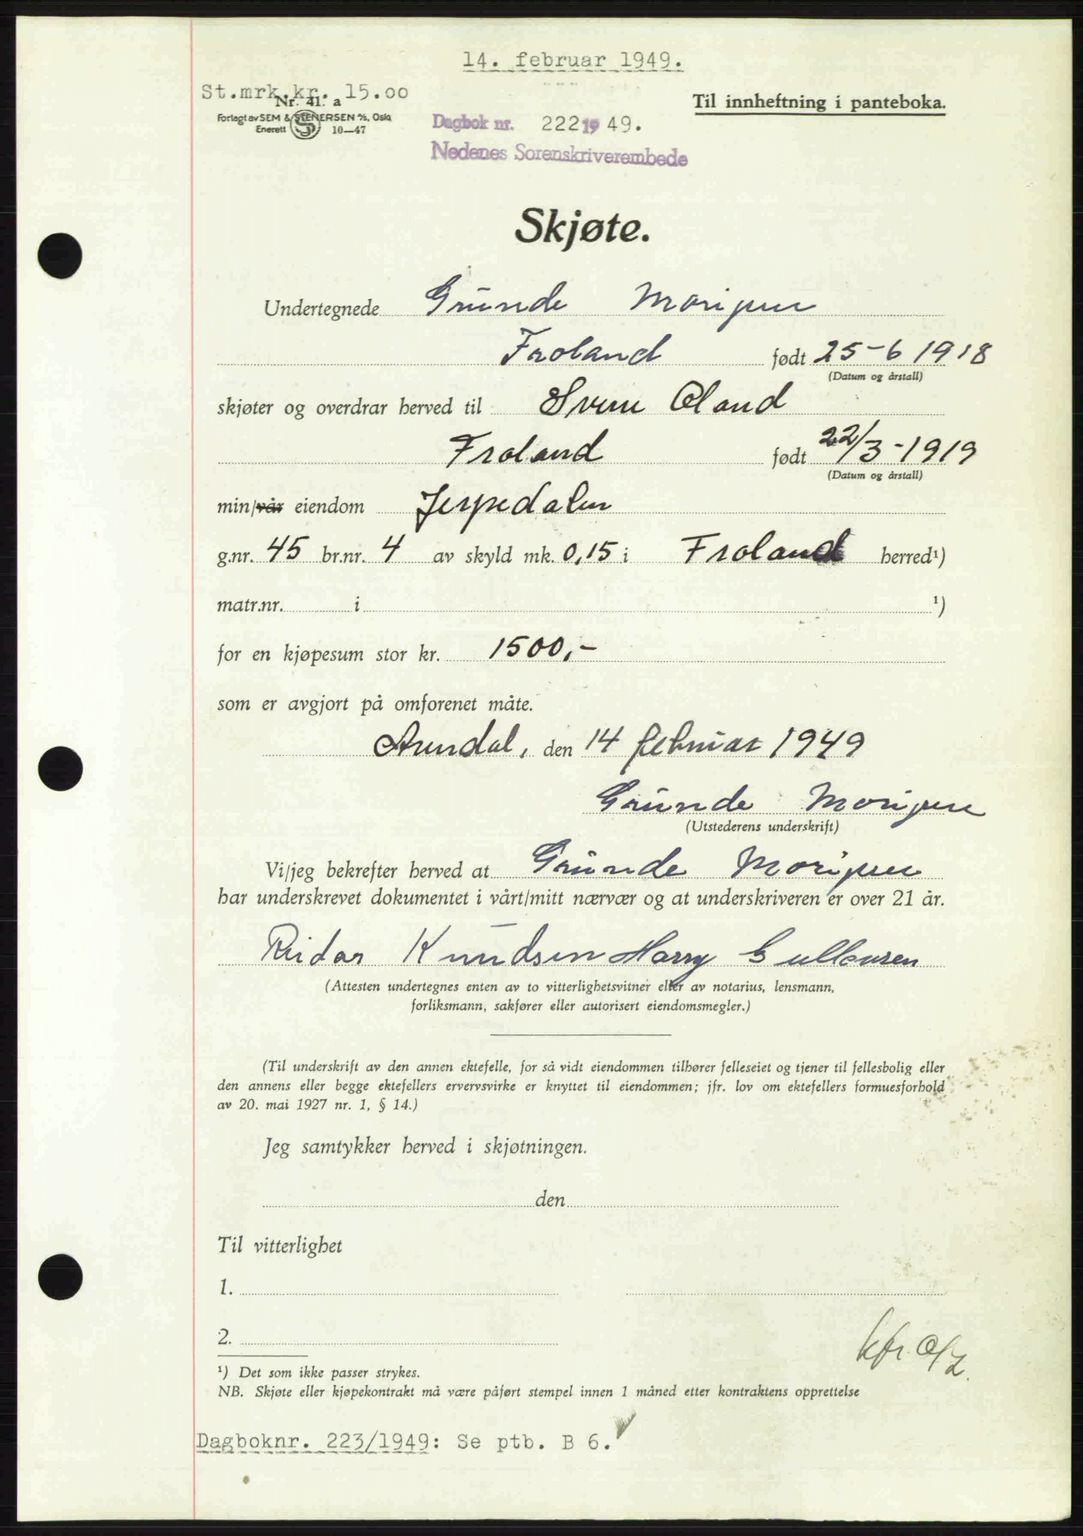 14. februar 1949.
St.mrk.kr. 15.00
Nr. 41. a
Forlagt av SEM & STENERSEN A/S, Oslo
Enerett 10—47
Til innheftning i panteboka.
Dagbok nr. 222 1949.
Nedenes Sorenskriverembede
Skjøte.
Undertegnede Grunde Morijsen
Froland født 25-6 1918
(Datum og årstall)
skjøter og overdrar herved til Svein Oland
Froland født 22/3-1919
(Datum og årstall)
min/vår eiendom Jerpedalen
g.nr. 45 br.nr. 4 av skyld mk. 0,15 i Froland herred¹)
matr.nr. i ¹)
for en kjøpesum stor kr. 1500,-
som er avgjort på omforenet måte.
Arendal, den 14 februar 1949
Grunde
(Utstederens underskrift)
Vi/jeg bekrefter herved at Grunde
har underskrevet dokumentet i vårt/mitt nærvær og at underskriveren er over 21 år.
Reidar Knudsen Harry Gullaksen
(Attesten undertegnes enten av to vitterlighetsvitner eller av notarius, lensmann,
forliksmann, sakfører eller autorisert eiendomsmegler.)
(Til underskrift av den annen ektefelle, for så vidt eiendommen tilhører felleseiet og tjener til fellesbolig eller
den annens eller begge ektefellers ervervsvirke er knyttet til eiendommen; jfr. lov om ektefellers formuesforhold
av 20. mai 1927 nr. 1, § 14.)
Jeg samtykker herved i skjøtningen.
den
Til vitterlighet
1.
2.
¹) Det som ikke passer strykes.
NB. Skjøte eller kjøpekontrakt må være påført stempel innen 1 måned etter kontraktens opprettelse
Dagboknr. 223/1949: Se ptb. B 6.